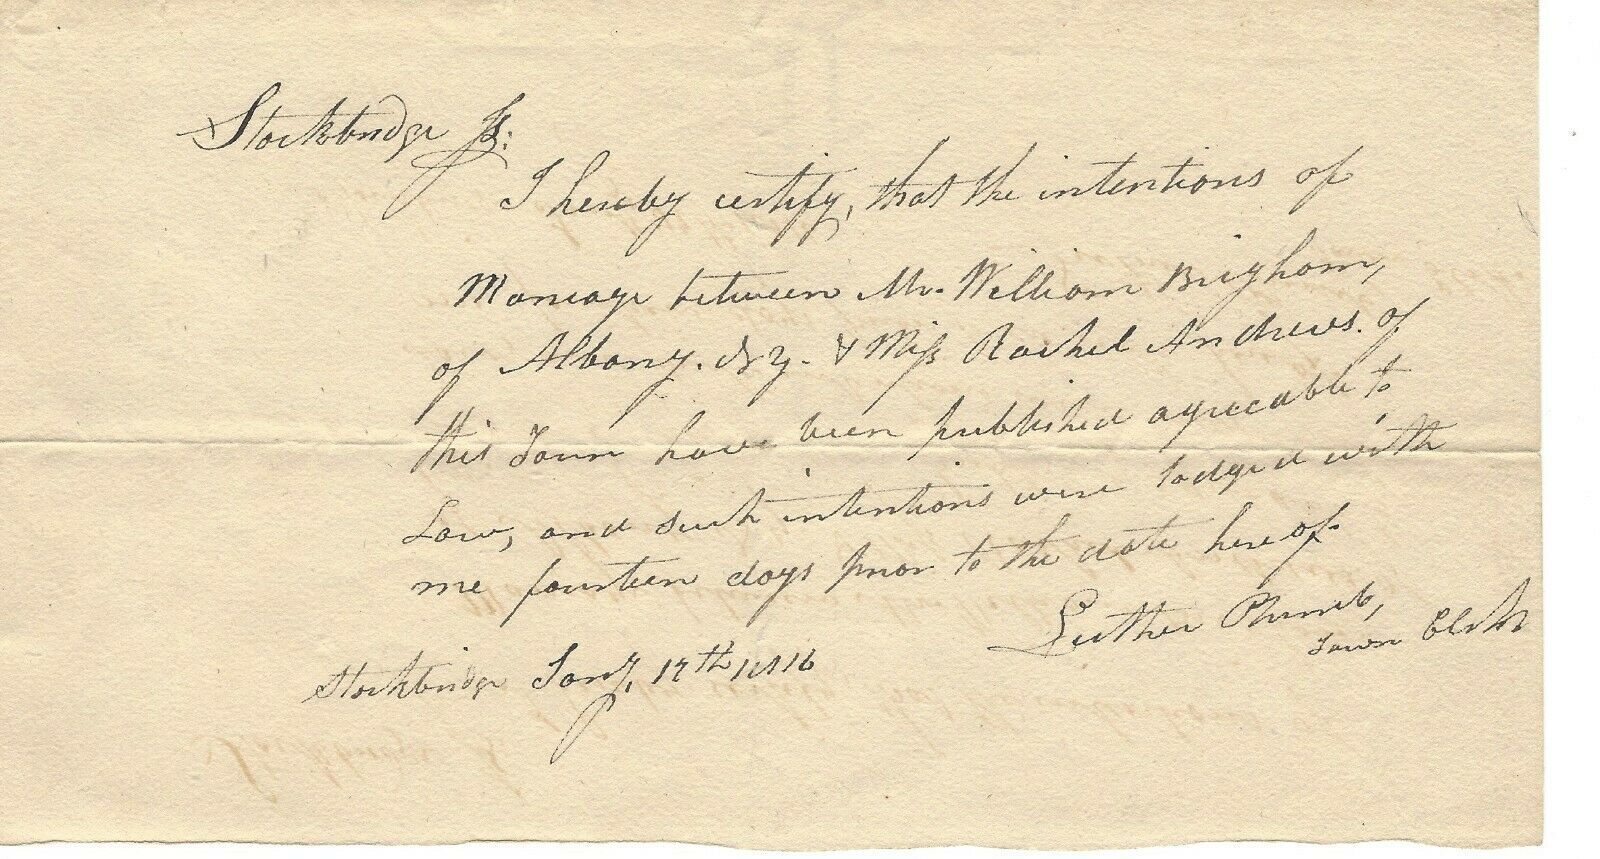 Stockbridge Ss:
I hereby certify, that the intentions of
Marriage between Mr. William Brigham,
of Albany. N.Y. & Miss Rachel Andrews. of
this Town have been published agreeable to
Law, and such intentions were lodged with
me fourteen days prior to the date hereof.
Luther Plumb,
Town Clerk
Stockbridge Jany, 17th 1816